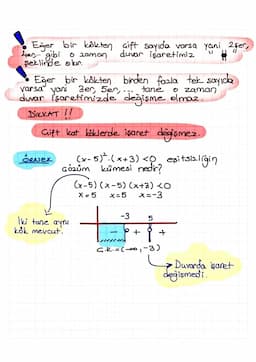 • Eğer bir kökten çift sayıda varsa yani 2şer,
gibi o zaman duvar işaretimiz " "
şeklinde olur.
• Eğer bir kökten birden fazla tek sayıda
varsa yani 3er, 5er, ... tane o zaman
duvar işaretimizde değişme olmaz.
DİKKAT !!
Çift kat köklerde işaret değişmez.
ÖRNEK (x-5)².(x+3) <0 eşitsizliğin
çözüm kümesi nedir?
(x-5) (x-5) (x+3) <0
x=5 x=5 x=-3
İki tane aynı
kök mevcut.
-3 5
- + +
Ç.K=(-∞,-3)
Duvarda işaret
değişmedi.